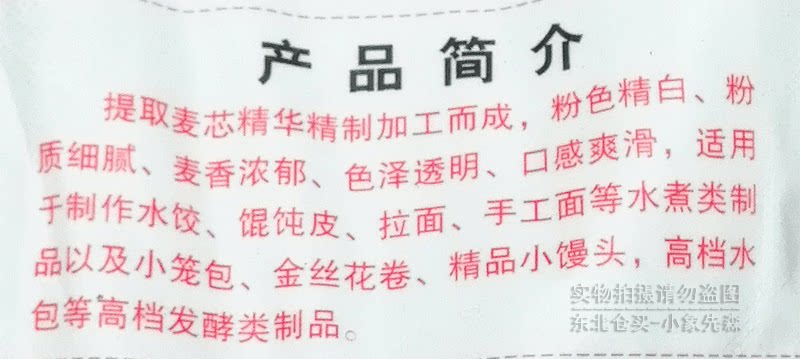 产品简介
提取麦芯精华精制加工而成，粉色精白、粉
质细腻、麦香浓郁、色泽透明、口感爽滑，适用
于制作水饺、馄饨皮、拉面、手工面等水煮类制
品以及小笼包、金丝花卷、精品小馒头，高档水
包等高档发酵类制品。
实物拍摄请勿盗图
东北仓买-小象先森